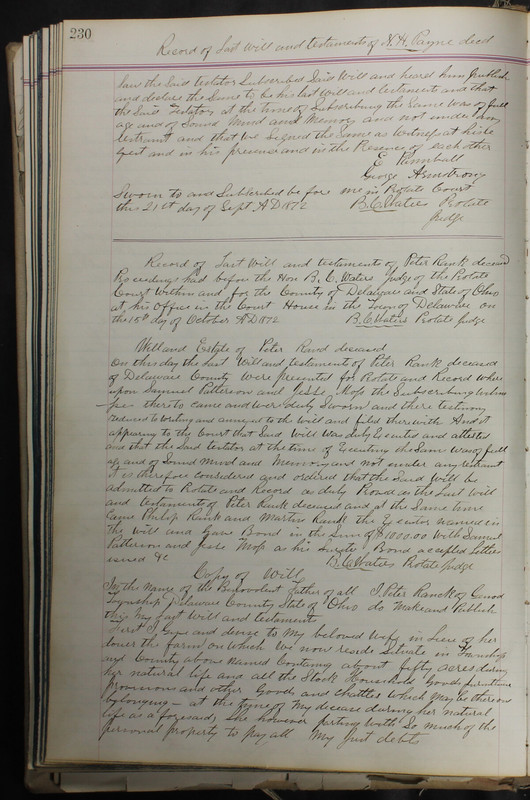 230
Record of Last Will and testaments of N. H. Payne decd
Saw the Said testator Subscribed Said Will and heard him publish
and declare the Same to be his last Will and testament and that
the Said Testator at the time of Subscribing the Same was of full
age and of Sound Mind and Memory and not under any
restraint and that we Signed the Same as Witness at his re
quest and in his presence and in the Presence of each other
E Kimball
George Armstrong
Sworn to and Subscribed before me in Probate Court
this 21st day of Sept A D 1872 B. C. Waters Probate
Judge
Record of Last Will and testaments of Peter Rank deceased
Proceedings had before the Hon B. C. Waters Judge of the Probate
Court Within and for the County of Delaware and State of Ohio
at his Office in the Court House in the Town of Delaware on
the 15th day of October A D 1872 B. C. Waters Probate Judge
Will and Estate of Peter Rand deceased
On this day the Last Will and testament of Peter Rank deceased
of Delaware County Were presented for Probate and Record Where
upon Samuel Patterson and Jesse Moss the Subscribing witnes
ses thereto came and were duly Sworn and there testimony
reduced to Writing and annexed to the Will and filed therewith And it
appearing to the Court that Said Will Was duly Executed and attested
and that the Said testator at the time of Executing the Same was of full
age and of Sound Mind and Memory and not under any restraint
it is therefore considered and ordered that the Said Will be
admitted to Probate and Record as duly Proved as the Last Will
and testament of Peter Rank deceased and at the Same time
Came Philip Rank and Martin Rank the Executor named in
the Will and gave Bond in the Sum of $1000.00 With Samuel
Patterson and Jesse Moss as his Surety Bond accepted Letters
issued &c B. C. Waters Probate Judge
Copy of Will
In the Name of the Benevolent Father of all I Peter Ranck of Genoa
Township Delaware County State of Ohio do Make and Publish
this My Last Will and testaments
First I Give and devise to My beloved Wife in Lieu of her
dower the farm on Which We now reside Situate in Township
and County above Named Containing about fifty acres during
her natural life and all the Stock Household Goods furniture
provisions and other Goods and Chattles Which May be thereon
belonging - at the time of My decease during her natural
life as aforesaid, She however parting With So much of the
personal property to pay all My Just debts